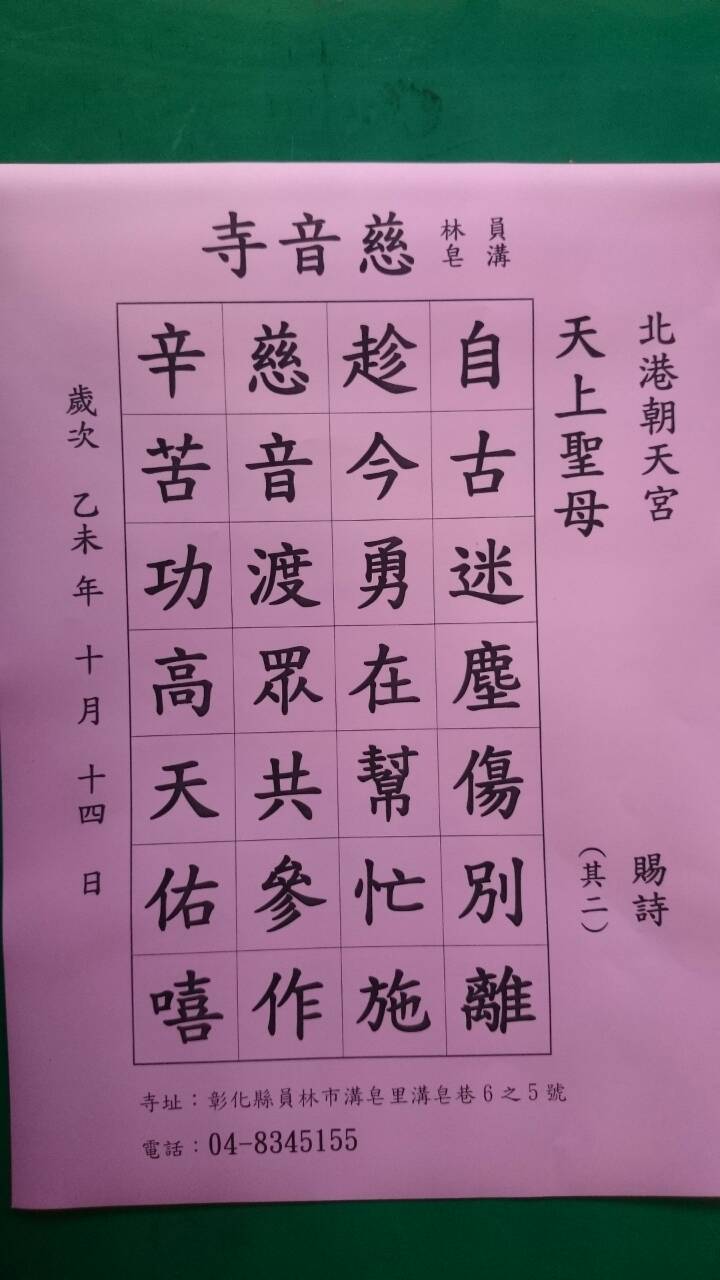 員林
溝皂
慈音寺
北港朝天宮 賜詩
天上聖母 (其二)
自古迷塵傷別離
趁今勇在幫忙施
慈音渡眾共參作
辛苦功高天佑嘻
歲次 乙未年 十月 十四 日
寺址：彰化縣員林市溝皂里溝皂巷6之5號
電話：04-8345155